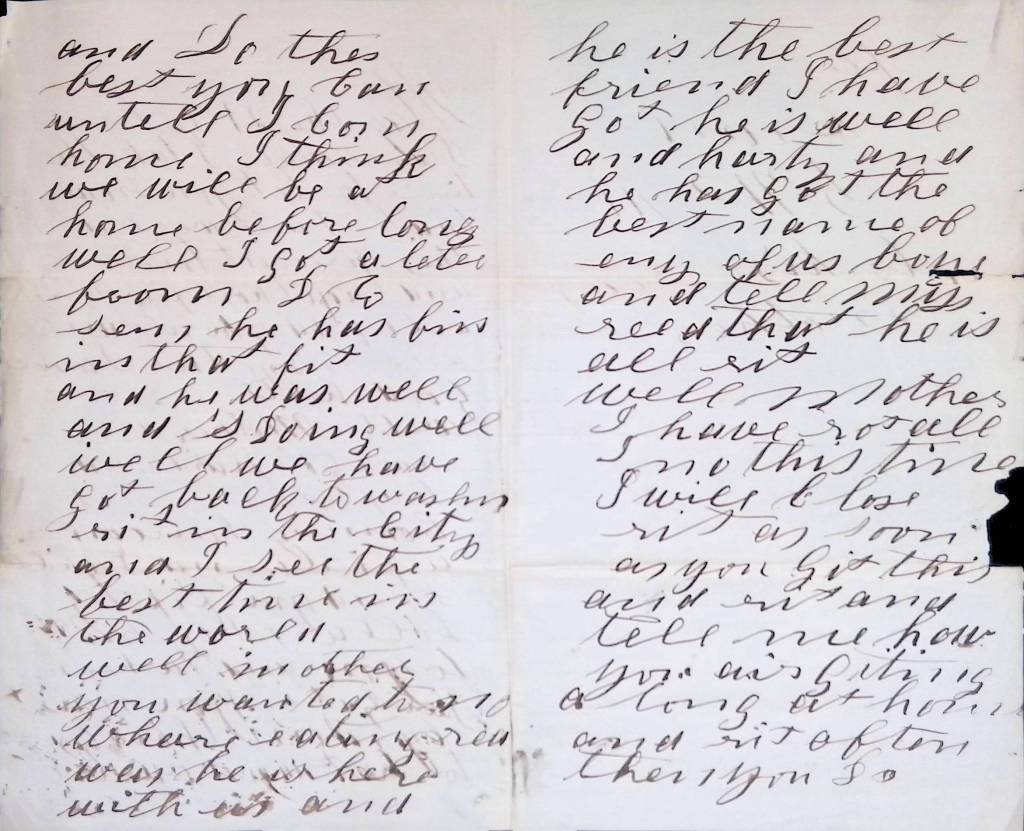 and Do thes
best you Can
untell I Com
home I think
we will be at
home before long
well I got a leter
from
he has bin
in that fit
and he was well
and is Doing well
well we have
got back to washin
rit in the City
and I see the
best time in
the world
well mother
you wanted to no
whare
was he is here
with us and
he is the best
friend I have
got he is well
and harty and
he has got the
best name of
eny of us boys
and tell miss
reed that he is
all rit
well mother
I have rot all
I no this time
I will Close
rit as soon
as you Git this
and rit and
tell me how
you air Giting
a long at home
and rit often
then you Do